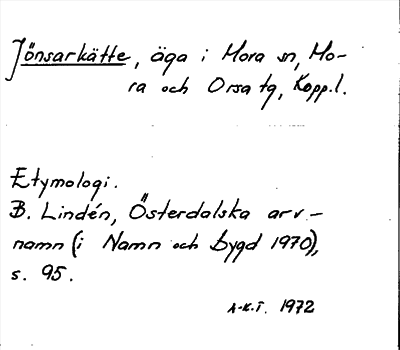 Jönsarkätte, äga i Mora sn, Mo-
ra och Orsa tg, Kopp.l.
Etymologi.
B. Lindén, Österdalska arv-
namn (i Namn och bygd 1970),
s. 95.
A-K.T. 1972